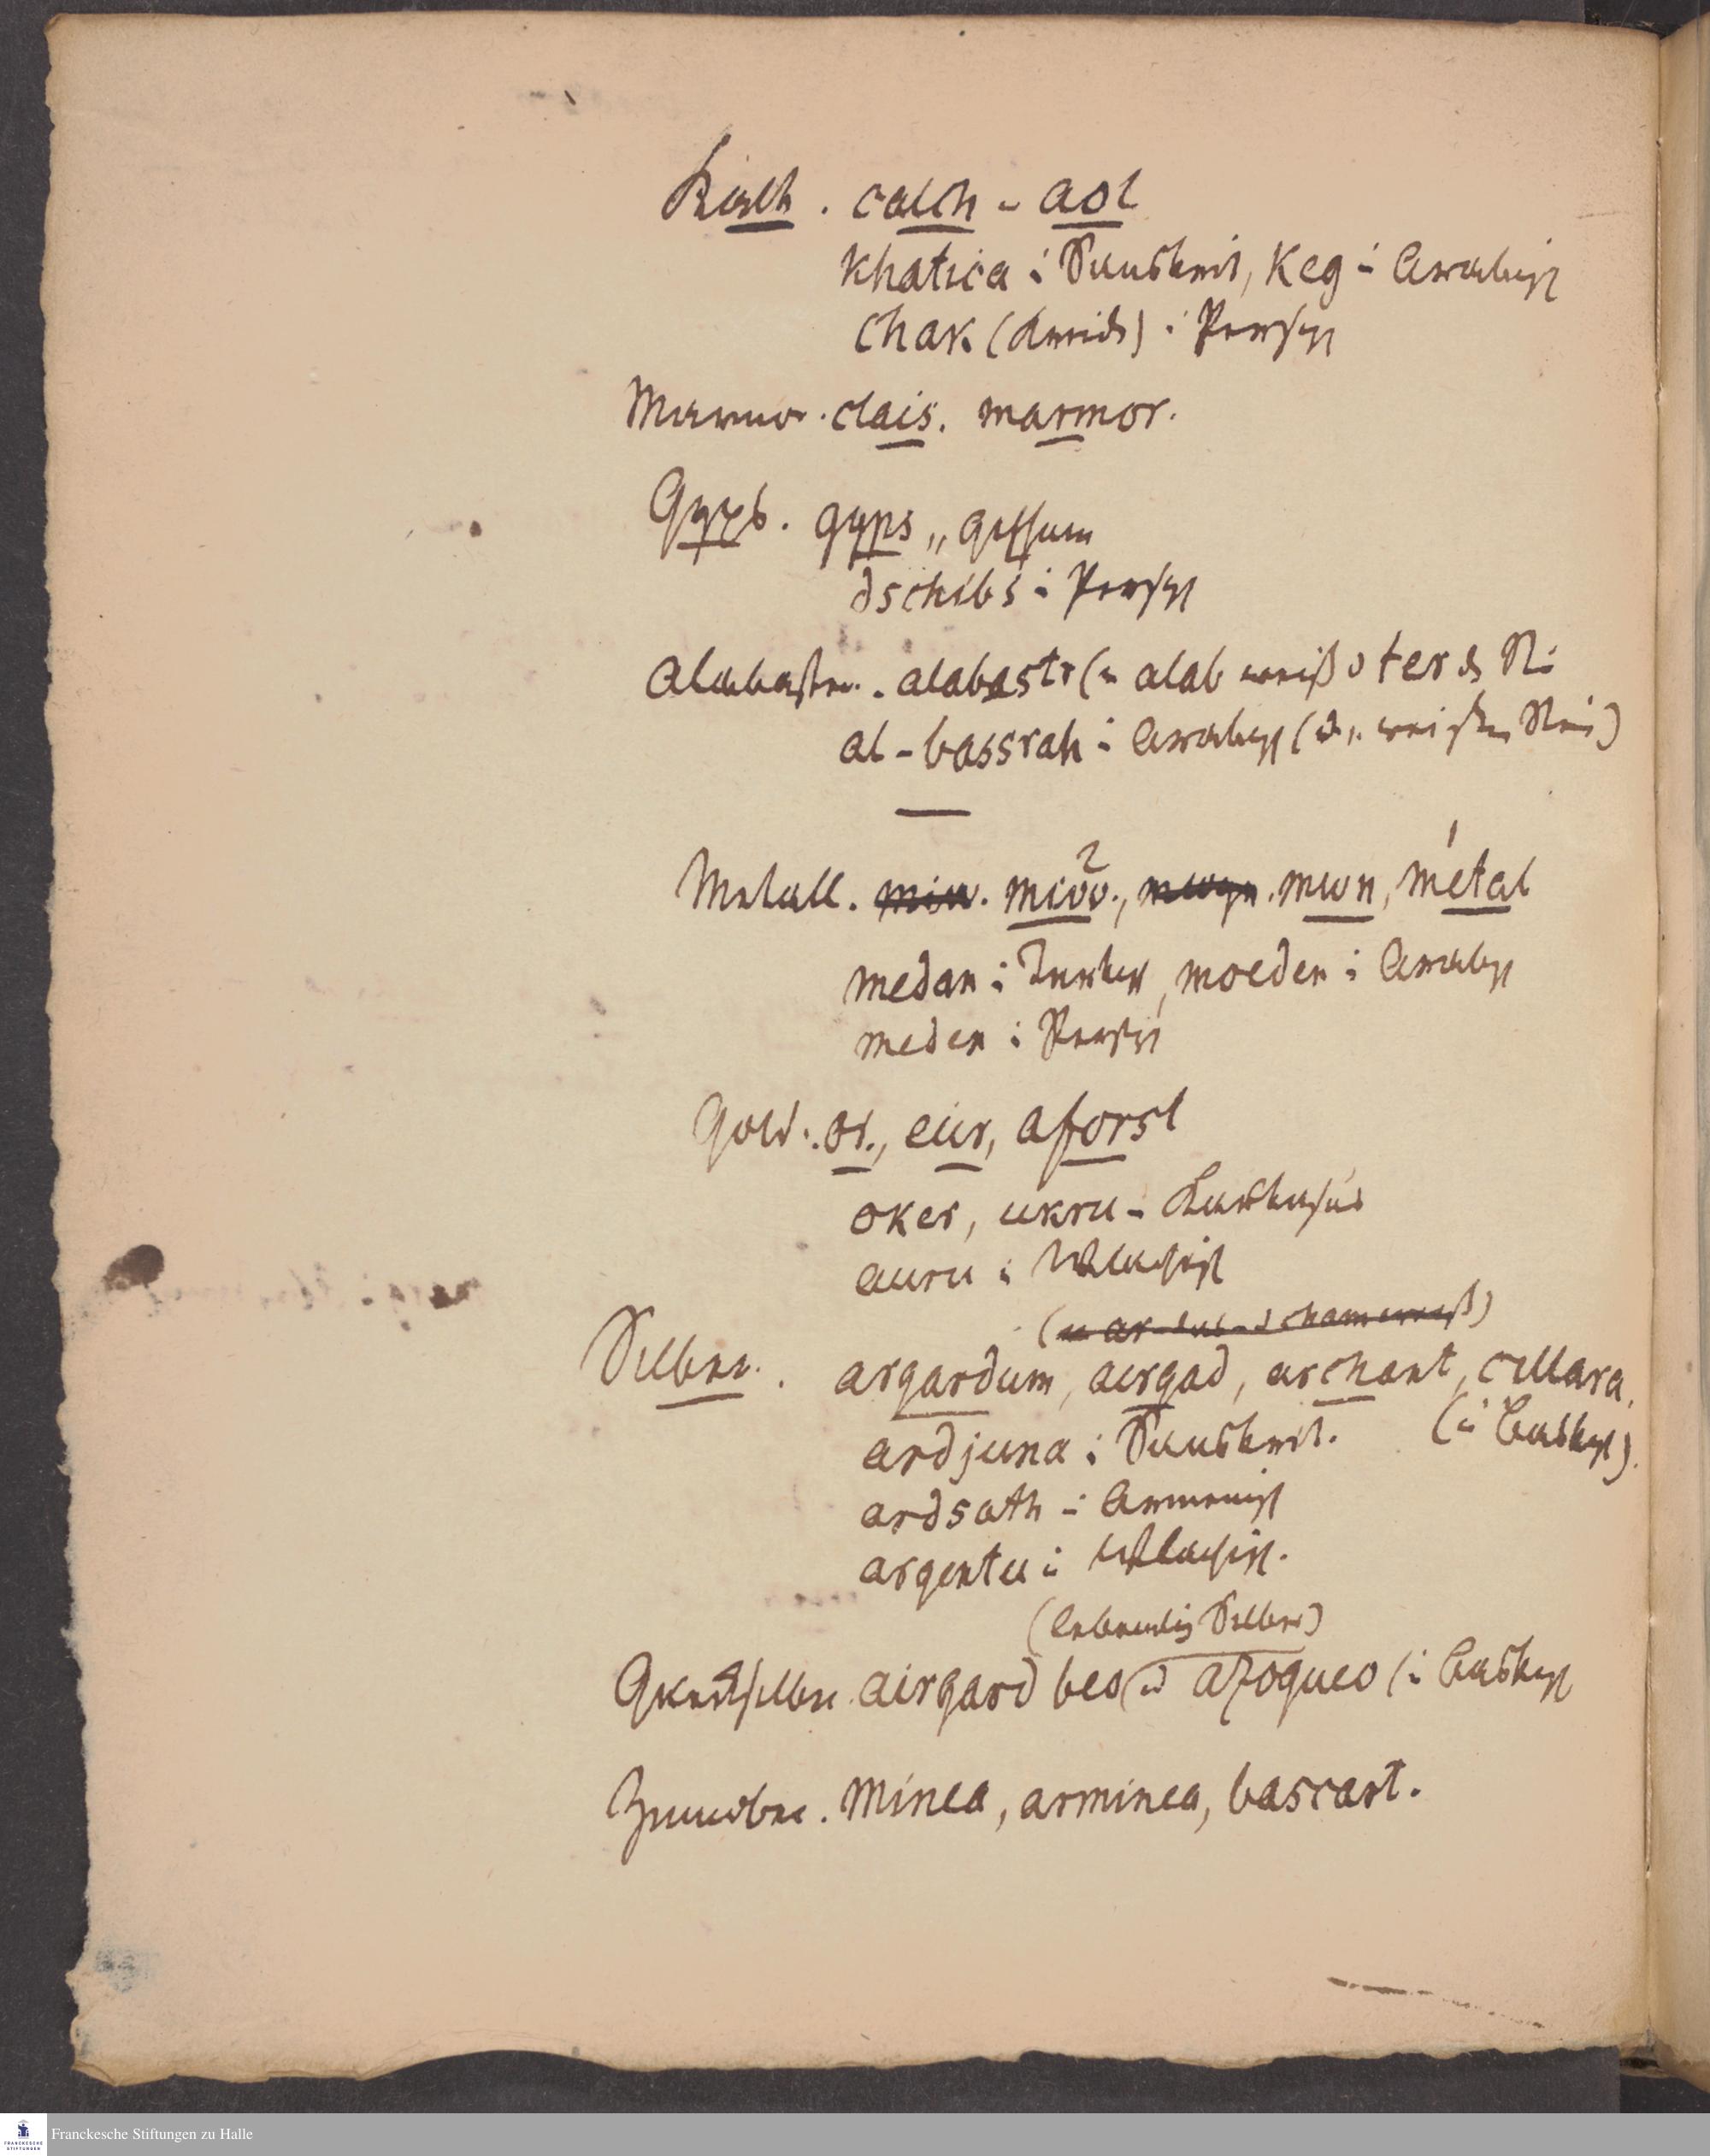 Kalk . calch - aol
khatica i Sanskrit, Keg - Arabisch
chak (Kreide) i Persisch
Marmor . clais. marmor.
Gyps . gyps „ gessum
dschibs i Persisch
Alabaster . alabastr (u alab weiß u ter d Stei
al - bassrah i Arabisch (der weiße Stein)
Metall . miw . mivv., . mwn, metal
2 1
medan i Türkisch, moeden i Arabisch
meden i Persisch
Gold . or., eur, aforsl
oker, ukru -
auru i Walachisch
Silber . argardum, airgad, archant, cillara
ardjuna i Sanskrit. (i Baskisch).
ardsath i Armenisch
argentu i Walachisch.
(lebendig Silber)
Quecksilber . airgard beo azogueo (i Baskisch
Zinnober . minea, arminea, bascart.
Franckesche Stiftungen zu Halle